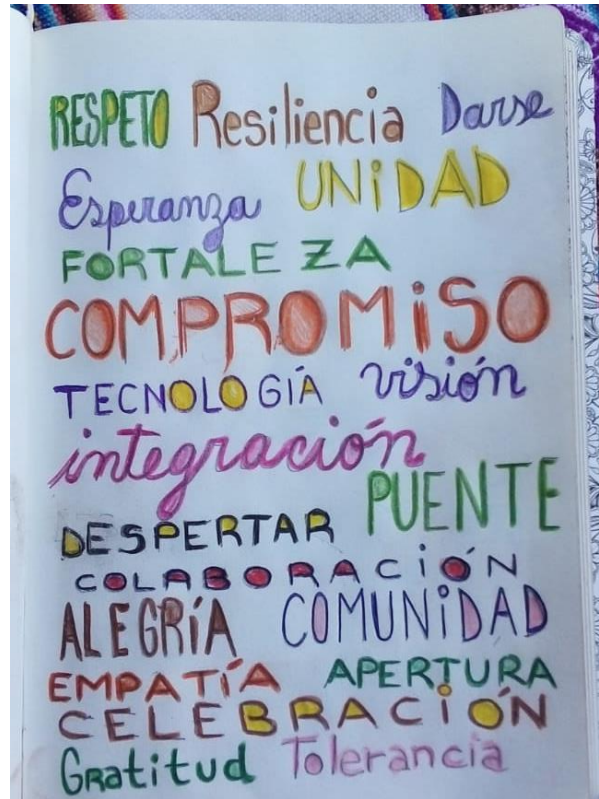 RESPETO Resiliencia Darse
Esperanza UNiDAD
FORTALEZA
COMPROMiSO
TECNOLOGÍA visión
integración
PUENTE
DESPERTAR
COLABORACiÓN
ALEGRÍA COMUNiDAD
EMPATÍA APERTURA
CELEBRACiÓN
Gratitud Tolerancia